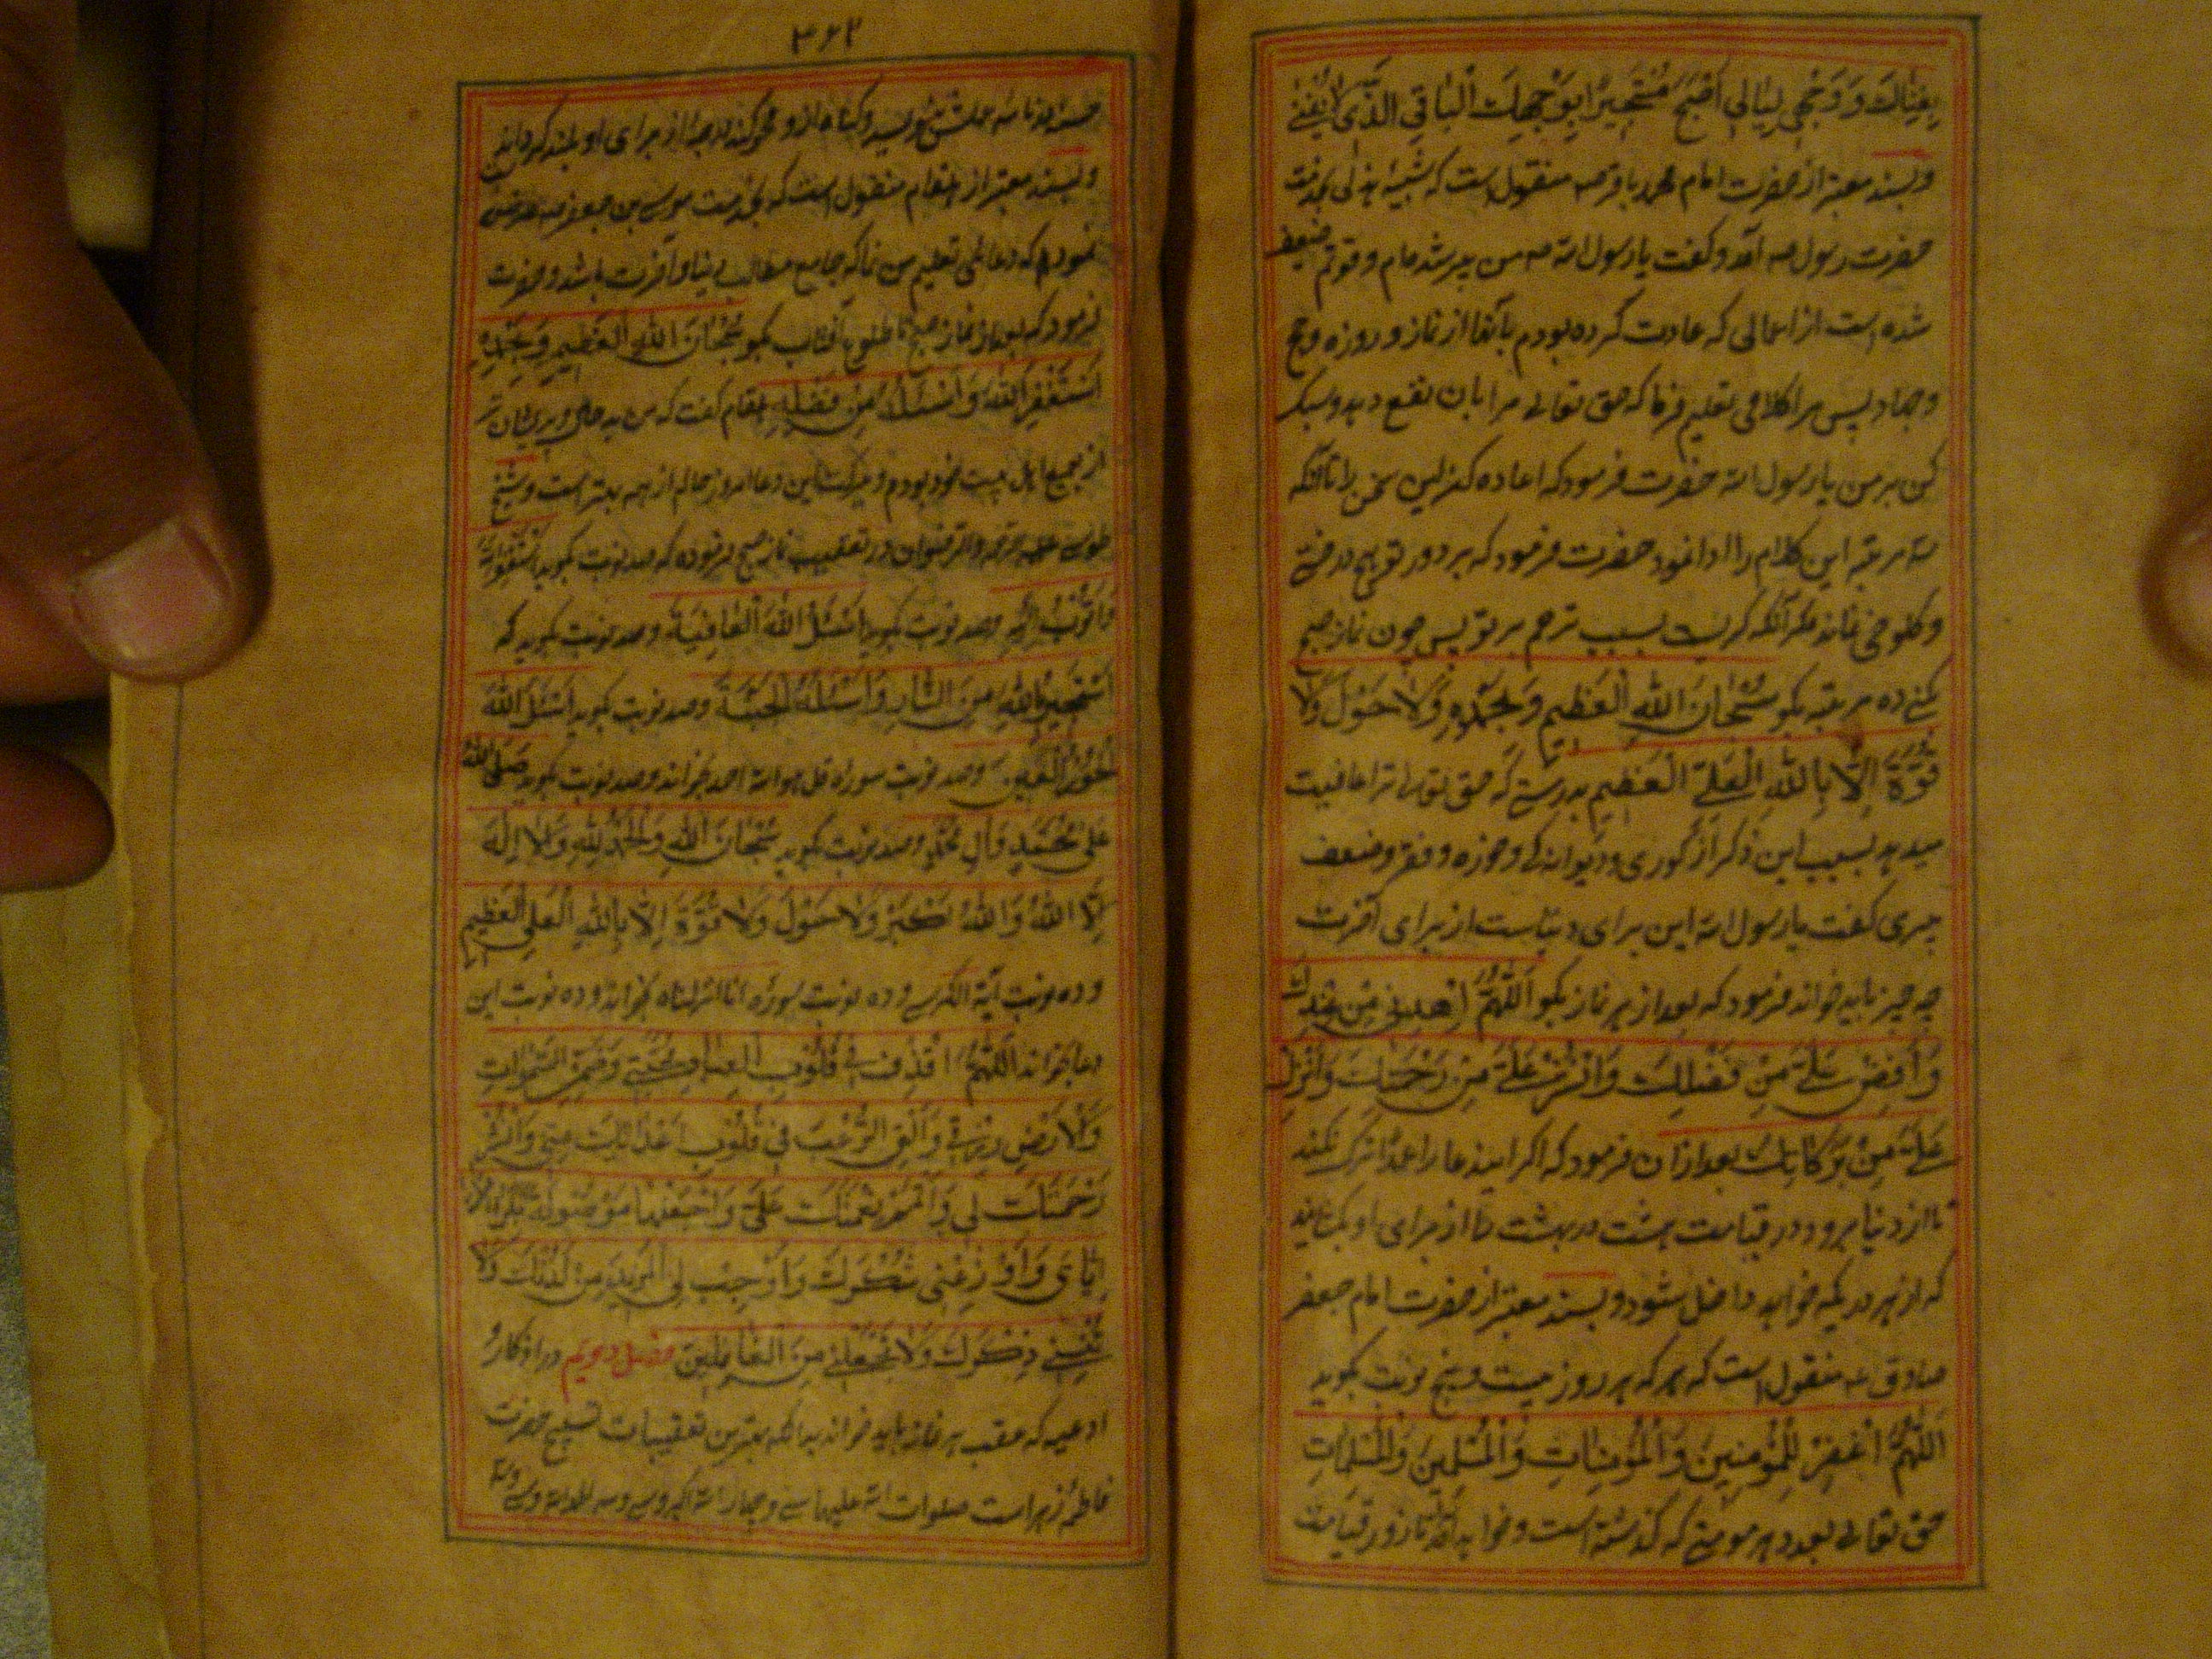 بِغِنَاكَ وَ وَجْهِي البَالِي اَصْبَحَ مُسْتَجِيراً بِوَجْهِكَ الْبَاقِي الَّذِی لَا يَفْنَی
و بسند معتبر از حضرت امام محمد باقر ع منقول است که شیبه هذلی بخدمت
حضرت رسول ص آمد و گفت یا رسول الله ص من پیر شده‌ام و قوتم ضعیف
شده است از اعمالی که عادت کرده بودم بآنها از نماز و روزه و حج
و جهاد پس مرا کلامی تعلیم فرما که حق تعالی مرا بان نفع دهد و سبک
کن بر من یا رسول الله حضرت فرمود که اعاده کن این سخن را تا آنکه
سه مرتبه این کلام را ادا نمود حضرت فرمود که بر دور تو هیچ درختی
و کلوخی نماند مگر آنکه گریست بسبب ترحم بر تو پس چون نماز صبح
کنی ده مرتبه بگو سُبْحَانَ اللهِ الْعَظِيمِ وَبِحَمْدِهِ وَلَا حَوْلَ وَلَا
قُوَّةَ اِلَّا بِاللهِ الْعَلِيِّ الْعَظِيمِ بدرستی که حق تعالی ترا عافیت
میدهد بسبب این ذکر از کوری و دیوانگی و خوره و فقر و ضعف
پیری گفت یا رسول الله این برای دنیاست از برای آخرت
چه چیز باید خواند فرمود که بعد از هر نماز بگو اَللّٰهُمَّ اهْدِنِي مِنْ عِنْدِكَ
وَاَفِضْ عَلَيَّ مِنْ فَضْلِكَ وَانْشُرْ عَلَيَّ مِنْ رَحْمَتِكَ وَاَنْزِلْ
عَلَيَّ مِنْ بَرَكَاتِكَ بعد از ان فرمود که اگر این دعا را عمداً ترک نکند
تا از دنیا برود در قیامت هشت در بهشت را از برای او بگشایند
که از هر در یکه خواهد داخل شود و بسند معتبر از حضرت امام جعفر
صادق ع منقول است که هر که هر روز بیست و پنج نوبت بگوید
اَللّٰهُمَّ اغْفِرْ لِلْمُؤْمِنِينَ وَالْمُؤْمِنَاتِ وَالْمُسْلِمِينَ وَالْمُسْلِمَاتِ
حق تعالی بعدد هر مومنی که گذشته است و خواهد آمد تا روز قیامت
۳۶۲
حسنه در نامه عملش بنویسد و گناه از او محو کند و درجه از برای او بلند گرداند
و بسند معتبر از هلقام منقول است که بخدمت موسی بن جعفر ع عرض
نمودم که دعائی تعلیم من نما که جامع مطالب دنیا و آخرت باشد حضرت
فرمود که بعد از نماز صبح تا طلوع آفتاب بگو سُبْحَانَ اللهِ الْعَظِيمِ وَبِحَمْدِهِ
اَسْتَغْفِرُ اللهَ وَاَسْئَلُهُ مِنْ فَضْلِهِ هلقام گفت که من بد حال و پریشان تر
از جمیع اهل بیت خود بودم و ببرکت این دعا امروز حالم از همه بهتر است و شیخ
طوسی علیه الرحمه والرضوان در تعقیب نماز صبح فرموده که صد نوبت بگوید اَسْتَغْفِرُ اللهَ
وَاَتُوبُ اِلَيْهِ و صد نوبت بگوید اَسْئَلُ اللهَ الْعَافِيَةَ و صد نوبت بگوید که
اَسْتَجِيرُ بِاللهِ مِنَ النَّارِ وَاَسْئَلُهُ الْجَنَّةَ و صد نوبت بگوید اَسْئَلُ اللهَ
الْحُورَ الْعِينَ و صد نوبت سوره قل هو الله احد بخواند و صد نوبت بگوید صَلَّى اللهُ
عَلَى مُحَمَّدٍ وَآلِ مُحَمَّدٍ و صد نوبت بگوید سُبْحَانَ اللهِ وَالْحَمْدُ لِلّٰهِ وَلَا اِلٰهَ
اِلَّا اللهُ وَاللهُ اَكْبَرُ وَلَا حَوْلَ وَلَا قُوَّةَ اِلَّا بِاللهِ الْعَلِيِّ الْعَظِيمِ
و ده نوبت آیة الکرسی و ده نوبت سوره انا انزلناه بخواند و ده نوبت این
دعا بخواند اَللّٰهُمَّ اقْذِفْ فِي قُلُوبِ الْعِبَادِ مَحَبَّتِي وَضَمِّنِ السَّمٰوَاتِ
وَالْاَرْضَ رِزْقِي وَاَلْقِ الرُّعْبَ فِي قُلُوبِ اَعْدَائِكَ مِنِّي وَانْشُرْ
رَحْمَتَكَ لِي وَاَتْمِمْ نِعْمَتَكَ عَلَيَّ وَاجْعَلْهَا مَوْصُولَةً بِكَرَامَتِكَ
اِيَّايَ وَاَوْزِعْنِي شُكْرَكَ وَاَوْجِبْ لِيَ الْمَزِيدَ مِنْ لَدُنْكَ وَلَا
تُنْسِنِي ذِكْرَكَ وَلَا تَجْعَلْنِي مِنَ الْغَافِلِينَ فصل دویم در اذکار و
ادعیه که عقب هر نماز باید خواند بدانکه بهترین تعقیبات تسبیح حضرت
فاطمه زهراست صلوات الله علیها سی و چهار الله اکبر و سی و سه الحمدلله و سی و سه